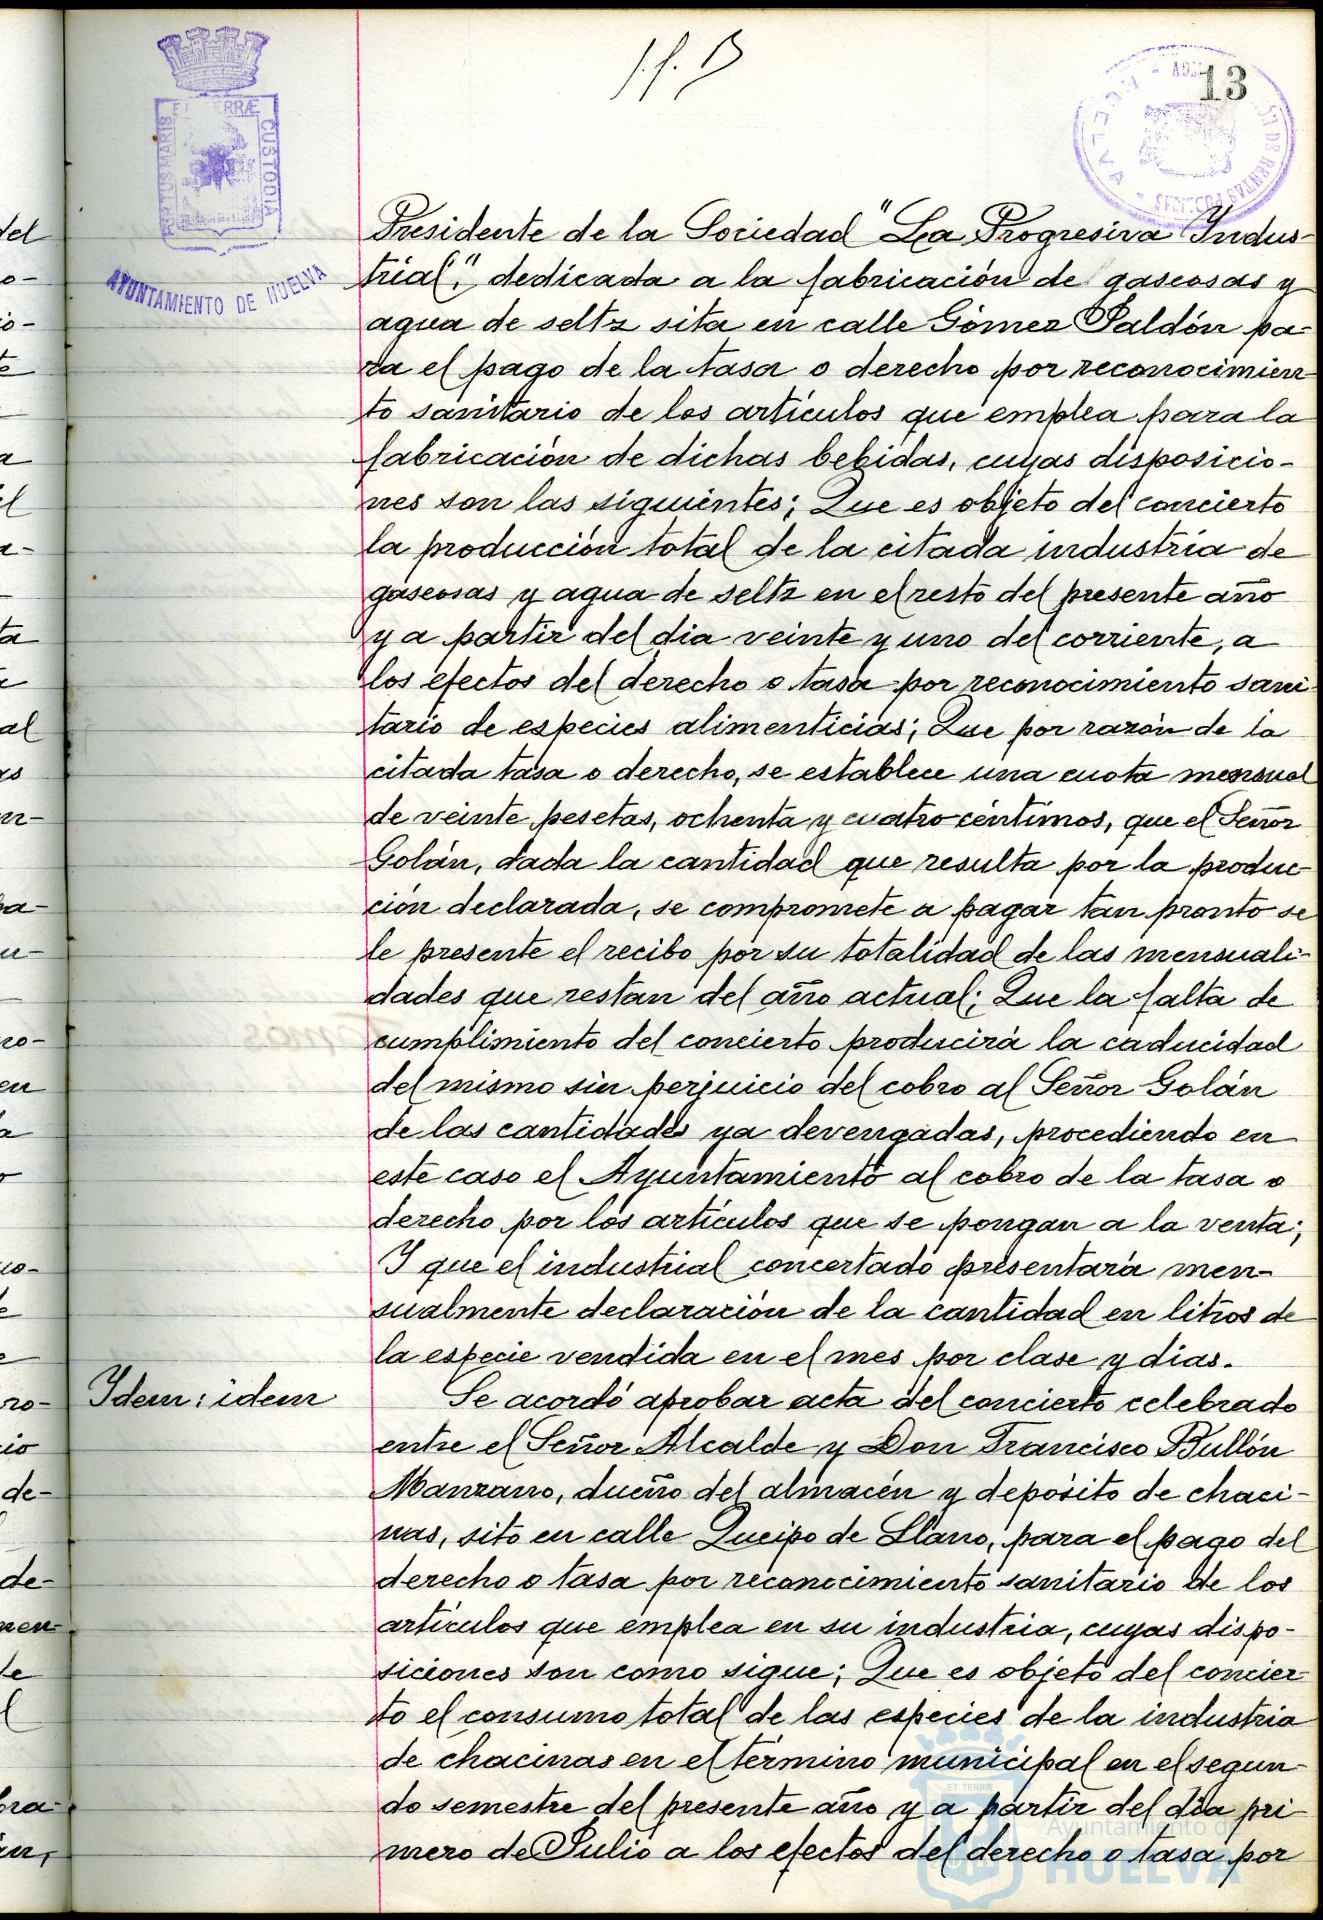 13
PORTUS MARIS ET TERRÆ CUSTODIA
AYUNTAMIENTO DE HUELVA
DE RENTAS PUBLICAS
HUELVA
Presidente de la Sociedad "La Progresiva Indus-
trial", dedicada a la fabricación de gaseosas y
agua de seltz sita en calle Gómez Jaldón pa-
ra el pago de la tasa o derecho por reconocimien-
to sanitario de los artículos que emplea para la
fabricación de dichas bebidas, cuyas disposicio-
nes son las siguientes; Que es objeto del concierto
la producción total de la citada industria de
gaseosas y agua de seltz en el resto del presente año
y a partir del dia veinte y uno del corriente, a
los efectos del derecho o tasa por reconocimiento sani-
tario de especies alimenticias; Que por razón de la
citada tasa o derecho, se establece una cuota mensual
de veinte pesetas, ochenta y cuatro céntimos, que el Señor
Golán, dada la cantidad que resulta por la produc-
ción declarada, se compromete a pagar tan pronto se
le presente el recibo por su totalidad de las mensuali-
dades que restan del año actual; Que la falta de
cumplimiento del concierto producirá la caducidad
del mismo sin perjuicio del cobro al Señor Golán
de las cantidades ya devengadas, procediendo en
este caso el Ayuntamiento al cobro de la tasa o
derecho por los artículos que se pongan a la venta;
Y que el industrial concertado presentará men-
sualmente declaración de la cantidad en litros de
la especie vendida en el mes por clase y dias.
Ydem: idem
Se acordó aprobar acta del concierto celebrado
entre el Señor Alcalde y Don Francisco Bullón
Manzano, dueño del almacén y depósito de chaci-
nas, sito en calle Queipo de Llano, para el pago del
derecho o tasa por reconocimiento sanitario de los
artículos que emplea en su industria, cuyas dispo-
siciones son como sigue; Que es objeto del concier-
to el consumo total de las especies de la industria
de chacinas en el término municipal en el segun-
do semestre del presente año y a partir del dia pri-
mero de Julio a los efectos del derecho o tasa por
ET TERRÆ
Ayuntamiento de
HUELVA